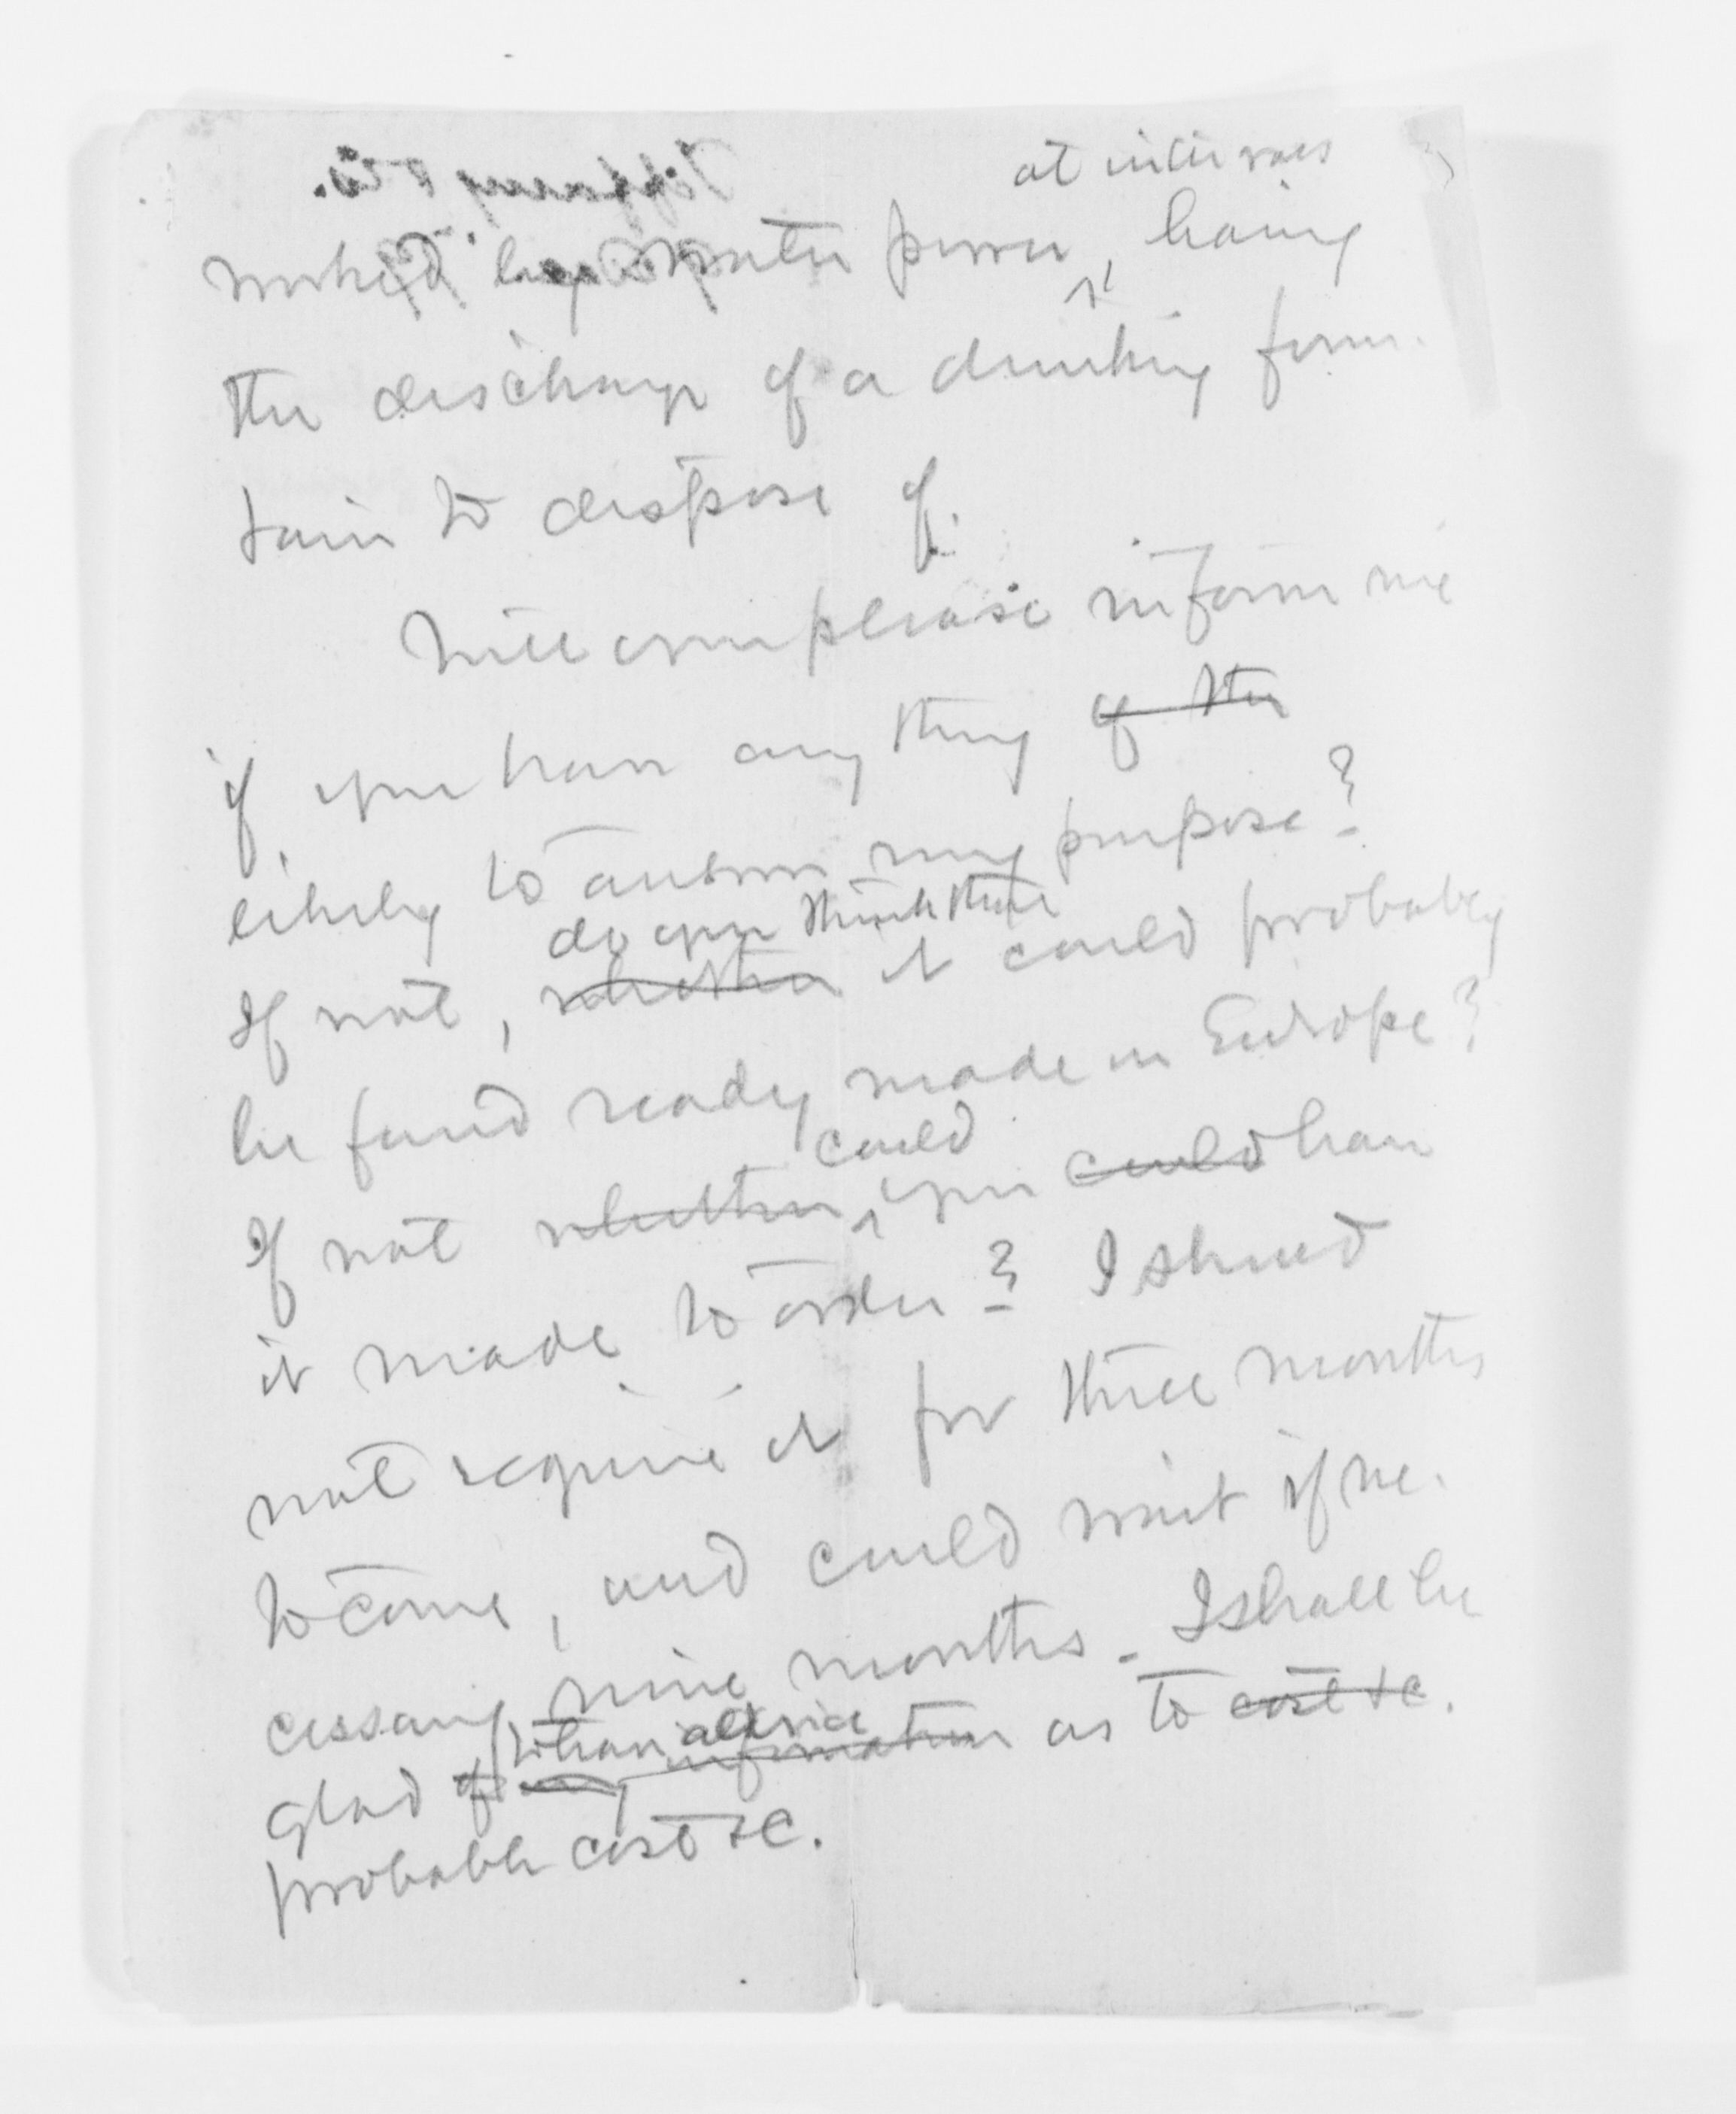 at intervals
worked by water power, having
the discharge of a drinking foun-
tain to dispose of.
Will you please inform me
if you have any thing of the
likely to answer my purpose?
do you think that
If not, whether it could probably
be found ready made in Europe?
could
If not whether you could have
it made to order? I should
not require it for three months
to come, and could wait if ne-
cessary nine months. I shall be
to have advice
glad of any information as to cost &c.
probable cost &c.